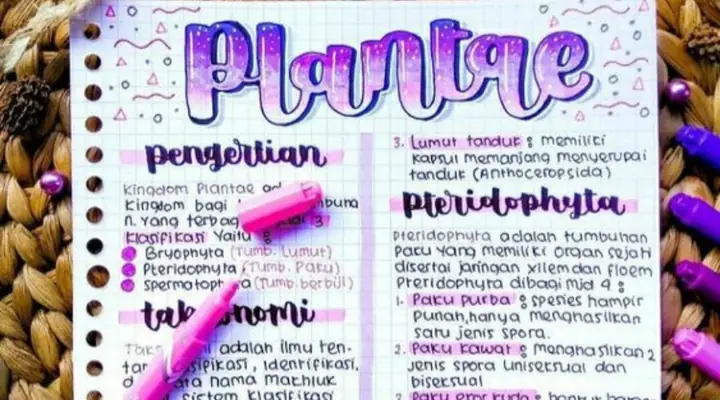 Plantae
pengertian
Kingdom Plantae
Kingdom bagi
n. Yang terbag 3
Klasifikasi Yaitu :
Bryophyta (Tumb. Lumut)
Pteridophyta (Tumb. Paku)
(Tumb. berbiji)
adalah ilmu ten-
, identifikasi,
nama makhluk
sistem klasifikasi
3. Lumut tanduk : memiliki
kapsul memanjang menyerupai
tanduk (Anthoceropsida)
Pteridophyta
Pteridophyta adalah tumbuhan
paku yang memiliki organ sejati
disertai jaringan xilem dan floem
Pteridophyta dibagi mjd 4 :
1. Paku purba : spesies hampir
punah, hanya menghasilkan
satu jenis spora.
2. Paku kawat : menghasilkan 2
jenis spora uniseksual dan
biseksual
3. Paku